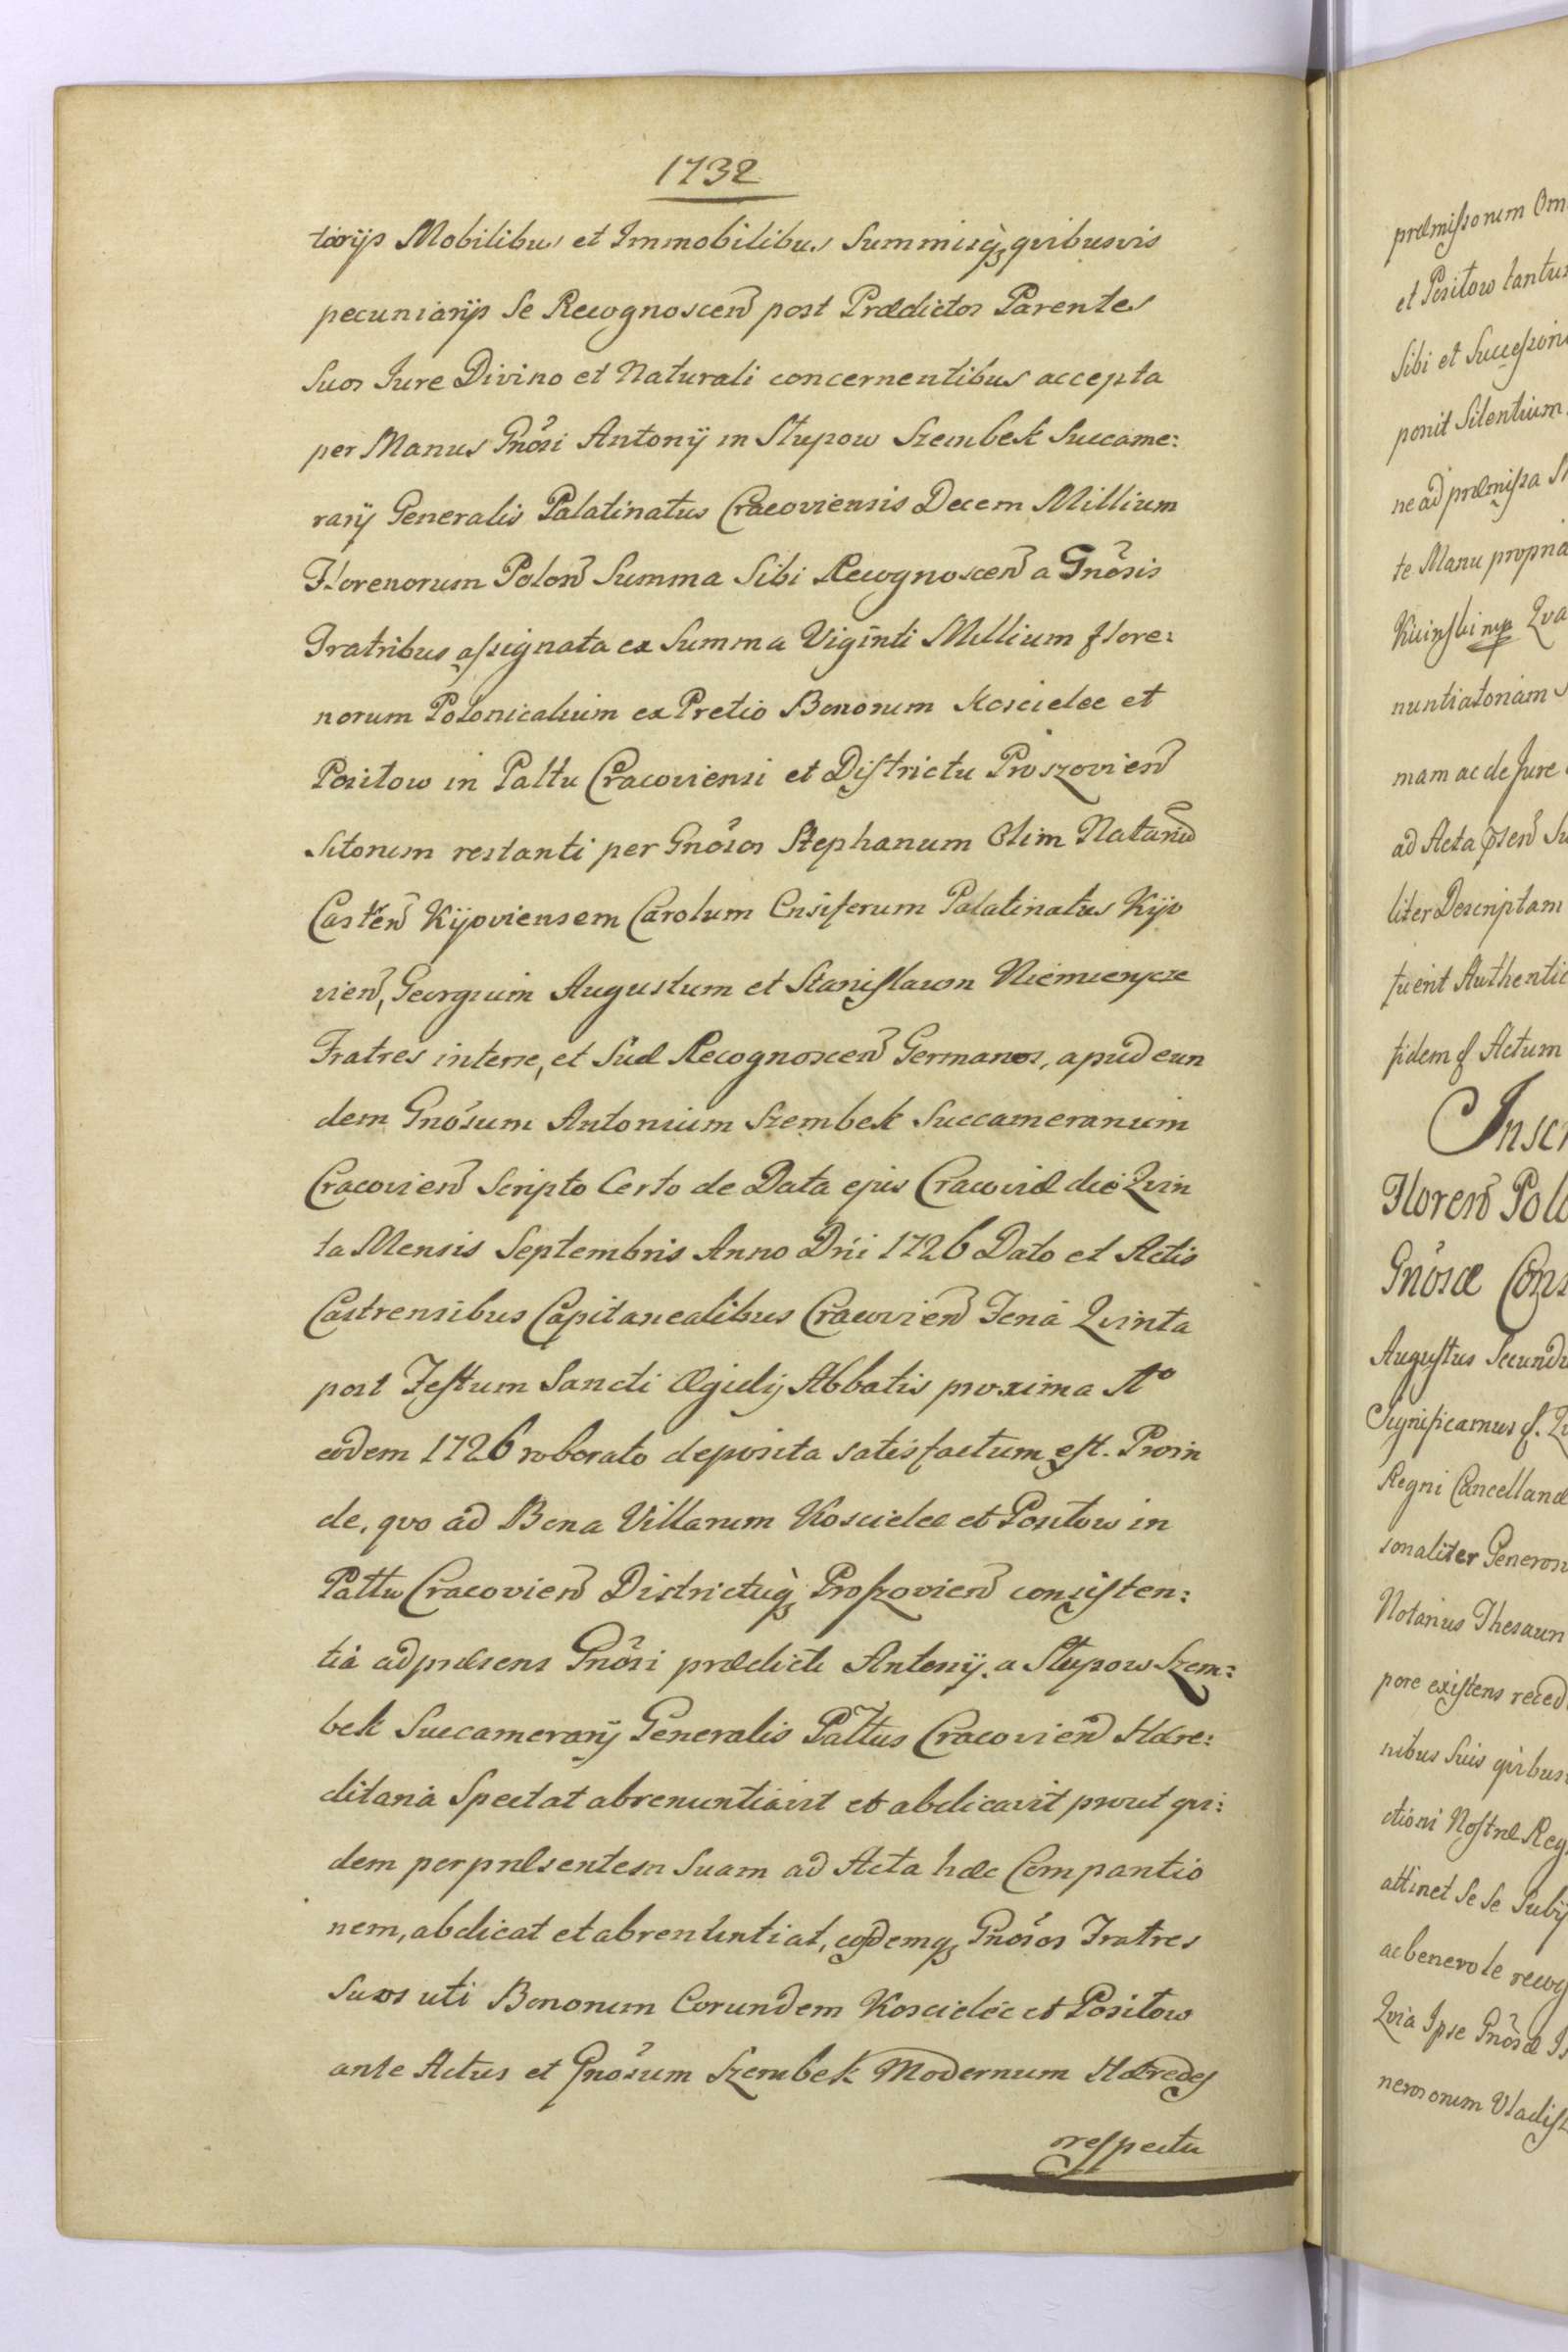 1732
torijs Mobilibus et Immobilibus Summisq̀ꝫ qvibusvis
pecuniarijs Se Recognoscen̄ post Prædictos Parentes
Suos Jure Divino et Naturali concernentibus accepta
per Manus Gnȏsi Antonij in Słupow Szembek Succame:
rarij Generalis Palatinatus Cracoviensis Decem Millium
Florenorum Polon̄ Summa Sibi Recognoscen̄ a Gnȏsis
Fratribus assignata ex Summa Viginti Millium flore:
norum Polonicalium ex Pretio Bonorum Koscielec et
Positow in Palttu Cracoviensi et Districtu Proszovien̄
Sitorum restanti per Gnȏsos Stephanum Olim
Castēn Kijoviensem Carolum Ensiferum Palatinatus Kijo
vien̄, Georgium Augustum et Stanislaum Niemierycze
Fratres interse, et Suæ Recognoscen̄ Germanos, apud eun
dem Gnȏsum Antonium Szembek Succamerarium
Cracovien̄ Scripto Certo de Data ejus Cracoviæ die Qvin
ta Mensis Septembris Anno Dn̄i 1726 Dato et Actis
Castrensibus Capitanealibus Cracovien̄ Feria Qvinta
post Festum Sancti Ægidij Abbatis proxima Aº
eodem 1726 roborato deposita satisfactum est. Proin
de, qvo ad Bona Villarum Koscielec et Positow in
Palttu Cracovien̄ Districtuq̀ꝫ Proszovien̄ consisten:
tia ad præsens Gnȏsi prædicti Antonij a Słupow Szem:
bek Succamerarij Generalis Palttus Cracovien̄ Hære:
ditaria Spectat abrenuntiavit et abdicavit prout qvi:
dem per præsentem Suam ad Acta hæc Comparitio
nem, abdicat et abrenuntiat, eosdemqꝫ Gnȏsos Fratres
Suos uti Bonorum Eorundem Koscielec et Positow
ante Actus et Gnȏsum Szembek Modernum Hæredes
respectu
præmissorum Om
et Positow tantu
Sibi et Successori
ponit Silentium
ne ad præmissa
te Manu propria
mp Qva
nuntiatoriam
mam ac de Jure
ad Acta
liter Descriptam
fuerit Authentic
fidem Actum
Inscr
Floren̄ Polo
Gnȏsæ Cons
Augustus Secundu
Significamus
Regni Cancellariæ
sonaliter Generos
Notarius Thesauri
pore existens reced
nibus Suis qvibus
ctioni Nostræ Reg
attinet Se Se Subij
ac benevole recog
Qvia Ipse Gnȏsæ
nerosorum Vladisl